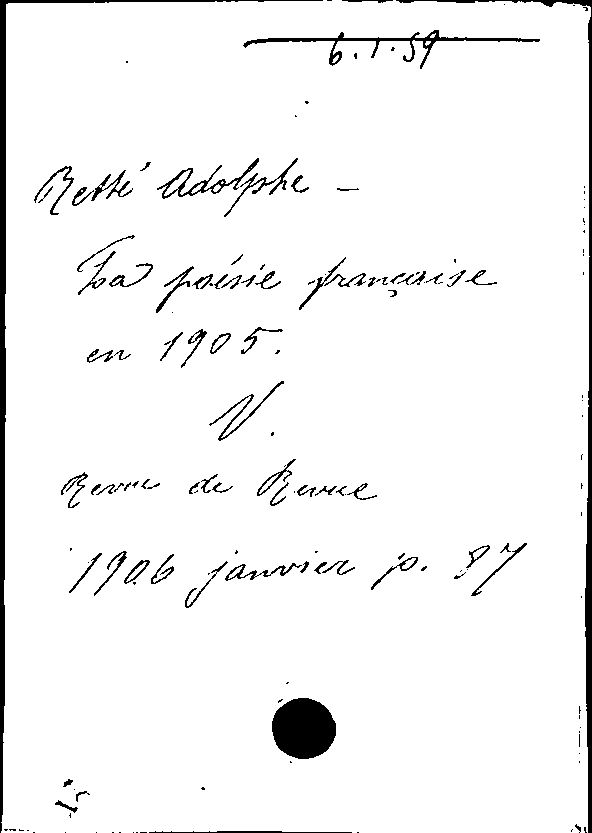 6.1.59
Retté Adolphe –
La poésie française
en 1905.
V.
Revue de Revue
1906 janvier p. 87